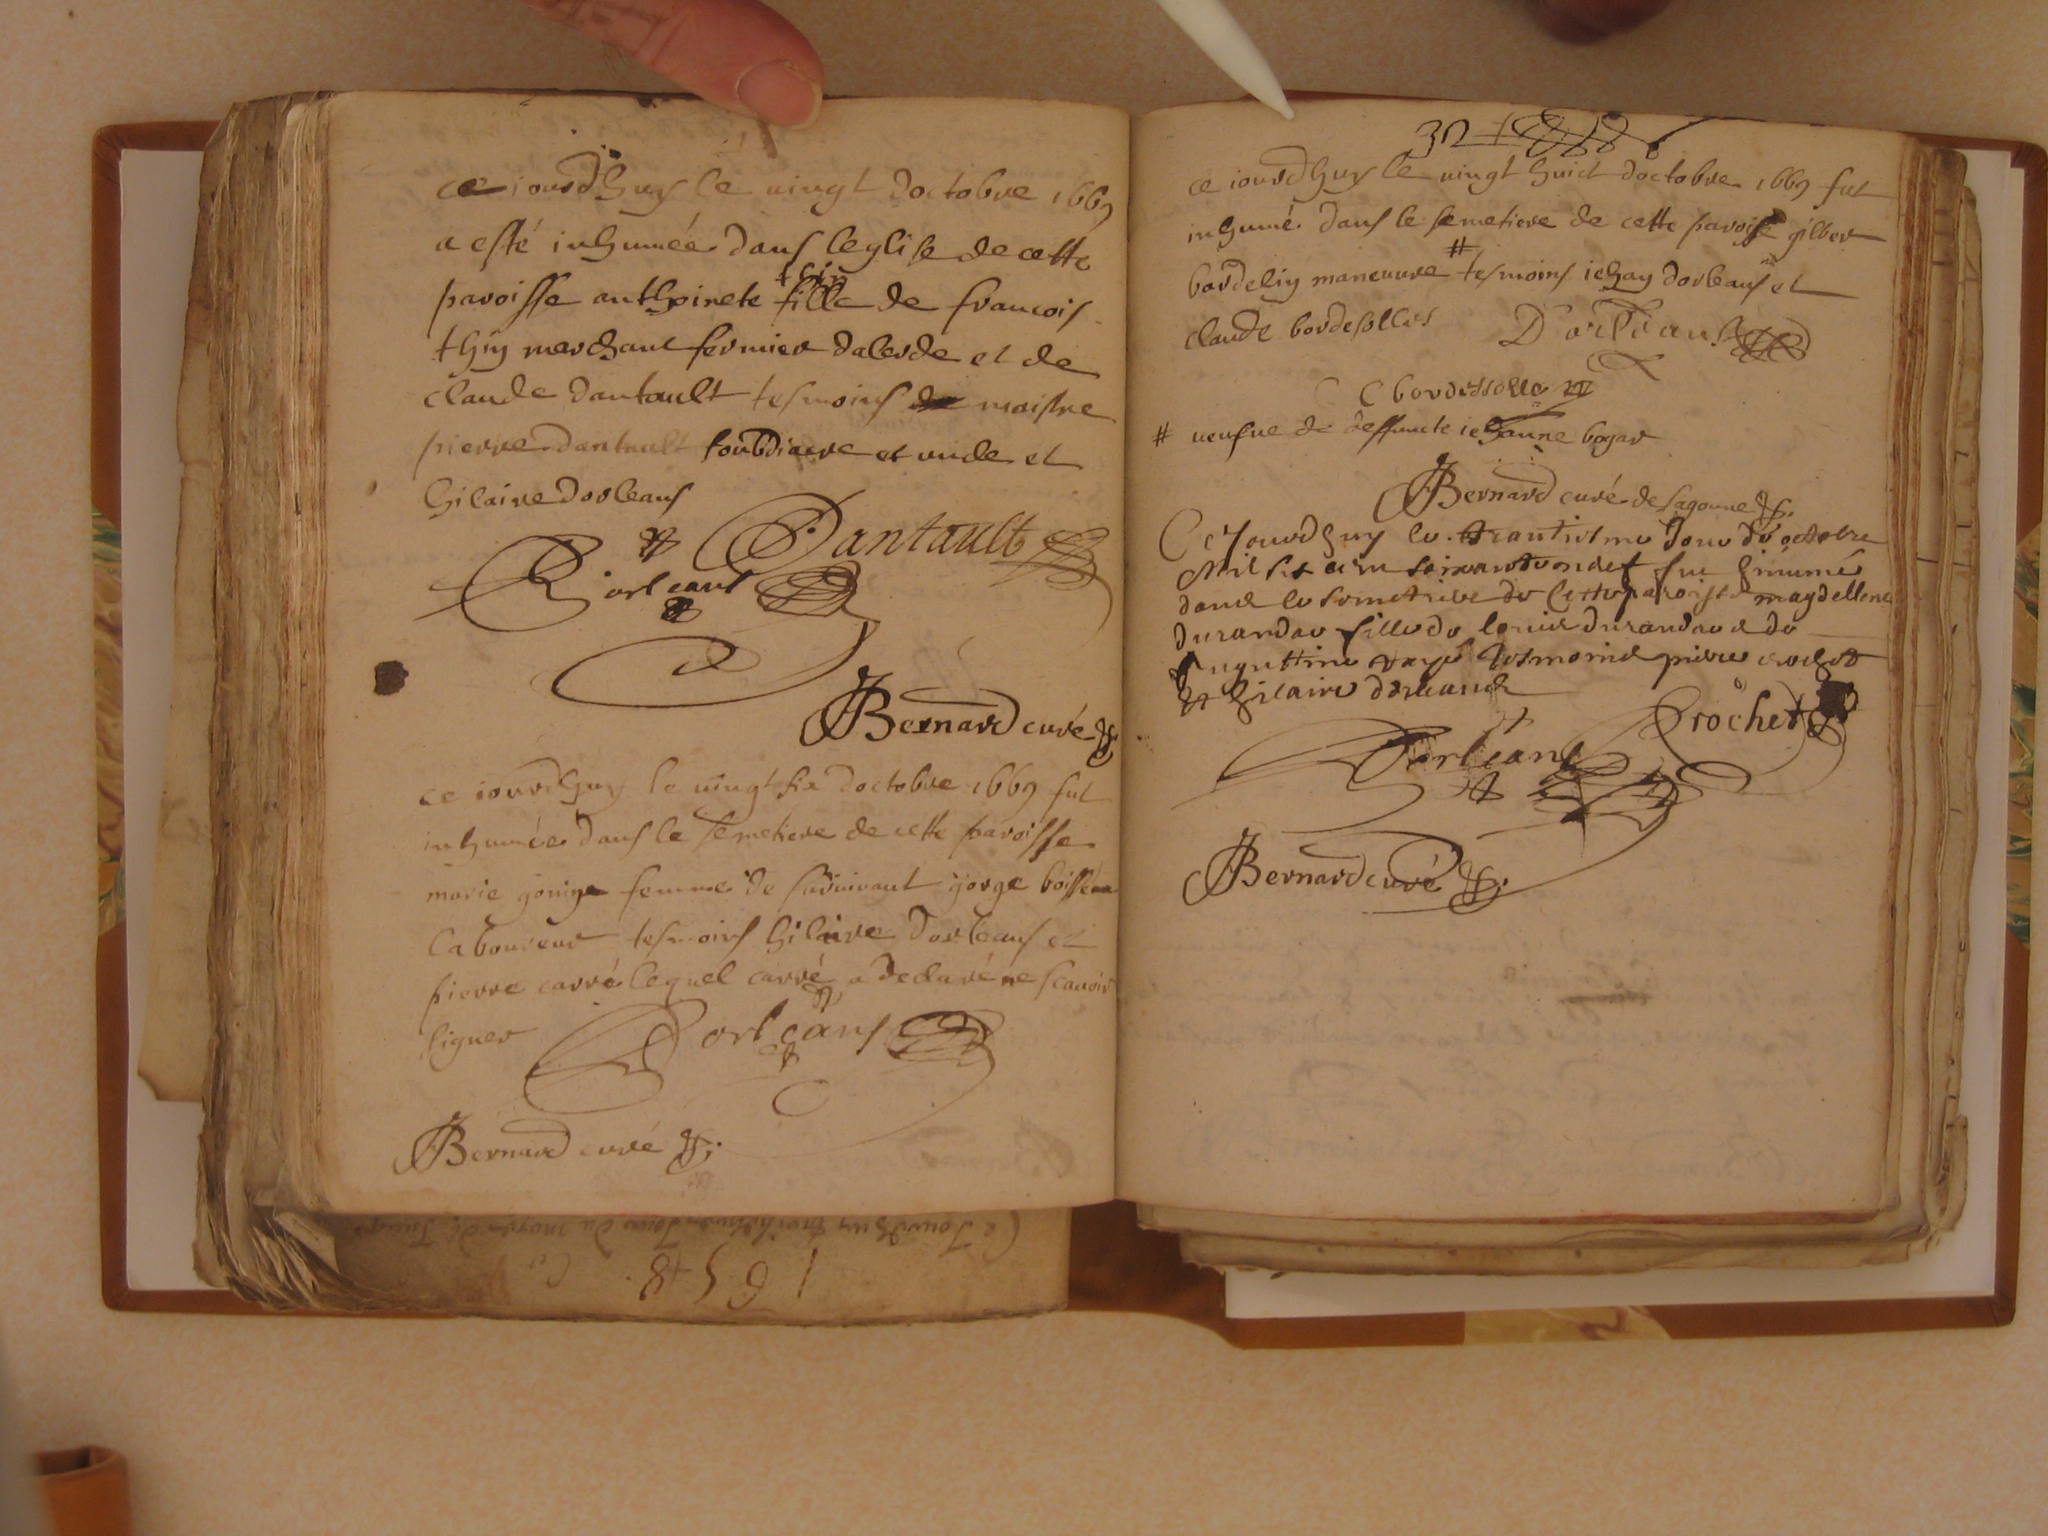 ce iourdhuy le vingt doctobre 1669
a esté inhumée dans leglise de cette
paroisse anthoinete thin fille de francois
thin marchant fermier dalesde et de
claude dantault tesmoins maistre
pierre dantault soubdiacre et
hilaire dorleans
Dantault
Dorleans
Bernard curé
ce iourdhuy le vingt six doctobre 1669 fut
inhumée dans le semetiere de cette paroisse
marie femme de survivant gorge
laboureur tesmoins hilaire dorleans et
pierre carré lequel carré a declaré ne scavoir
signer
Dorleans
Bernard curé
1658
32
ce iourdhuy le vingt huict doctobre 1669 fut
inhumé dans le semetiere de cette paroisse gilber
bordelin maneuvre # tesmoins iehan dorleans et
claude bordesolles
D'orleans
C bordessolle
# veufue de deffuncte iehanne bogar
Bernard curé de sagonne
Ce Jourdhuy le trantiesme Jour de octobre
Mil six cens soixante et neuf fut hinumé
dans le semetiere de cette paroisse magdellene
durandau fille de louis durandau et de
tesmoins pierre crochet
et hilaire dorleans
Crochet
Dorleans
Bernard curé